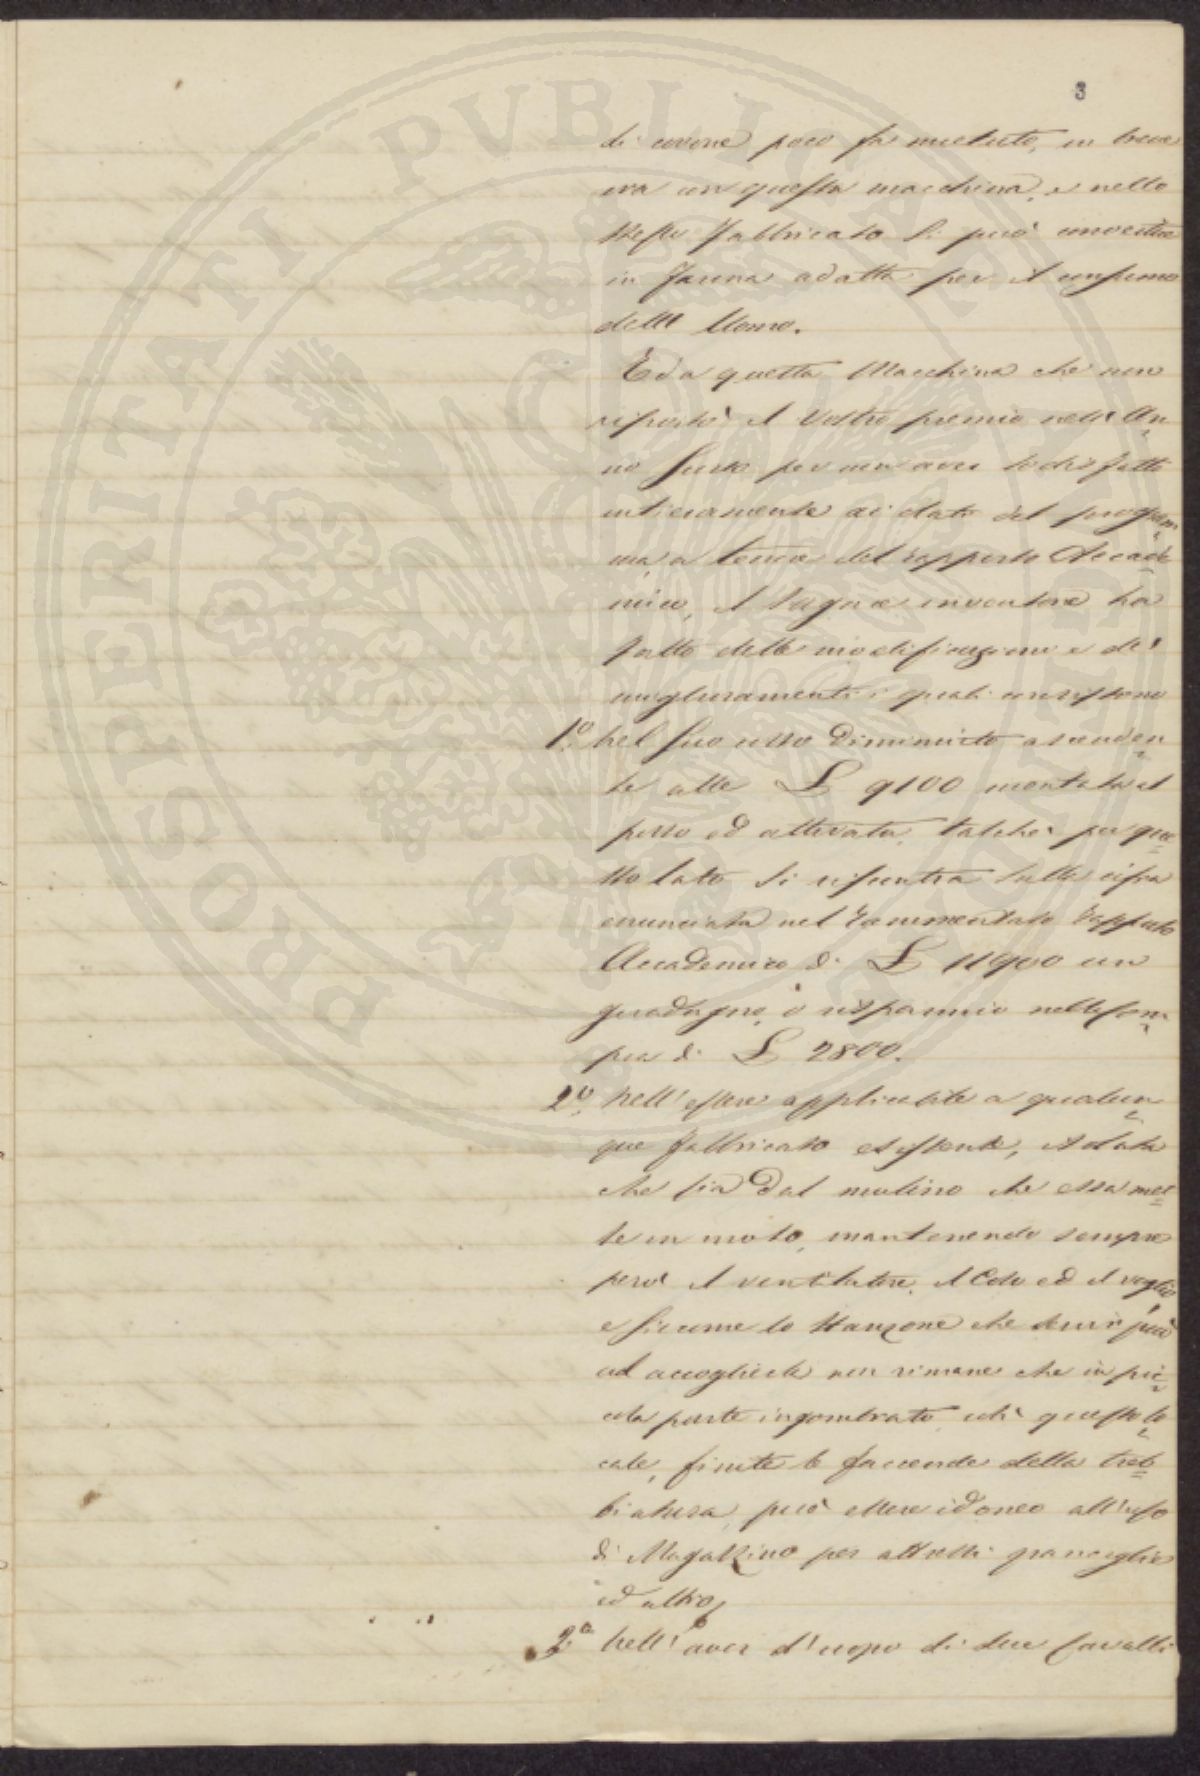 3
PROSPERITATI PVBLICAE
di covone poco fa mietuto, in breve
ora con questa macchina, e nello
stesso Fabbricato si può convertire
in farina adatta per il consumo
dell' Uomo.
Ed a questa Macchina che non
riportò il Vostro premio nell' An=
no scorso per non aver sodisfatto
intieramente ai dati del program=
ma, a tenore del rapporto Accade=
mico, il inventore ha
fatto delle modificazioni e de'
miglioramenti i quali consistono
1.o Nel suo costo diminuito ascenden=
te alle £ 9100 montata al
posto ed attivata, talché per que=
sto lato si riscontra sulla cifra
enunciata nel rammentato rapporto
Accademico di £ 11900 un
guadagno, o risparmio nella
di £ 2800.
2.o Nell' essere applicabile a qualun=
que fabbricato esistente, isolata
che sia dal mulino che essa met=
te in moto, mantenendo sempre
però il ventilatore, il Colo ed il vaglio
e siccome lo Stanzone che
ad accoglierla non rimane che in pic=
cola parte ingombrato, così questo lo=
cale, finite le faccende della treb=
biatura, può essere idoneo all' uso
di Magazzino per attrezzi granaglie
ed altro,
3.o Nell' aver d' uopo di due Cavalli